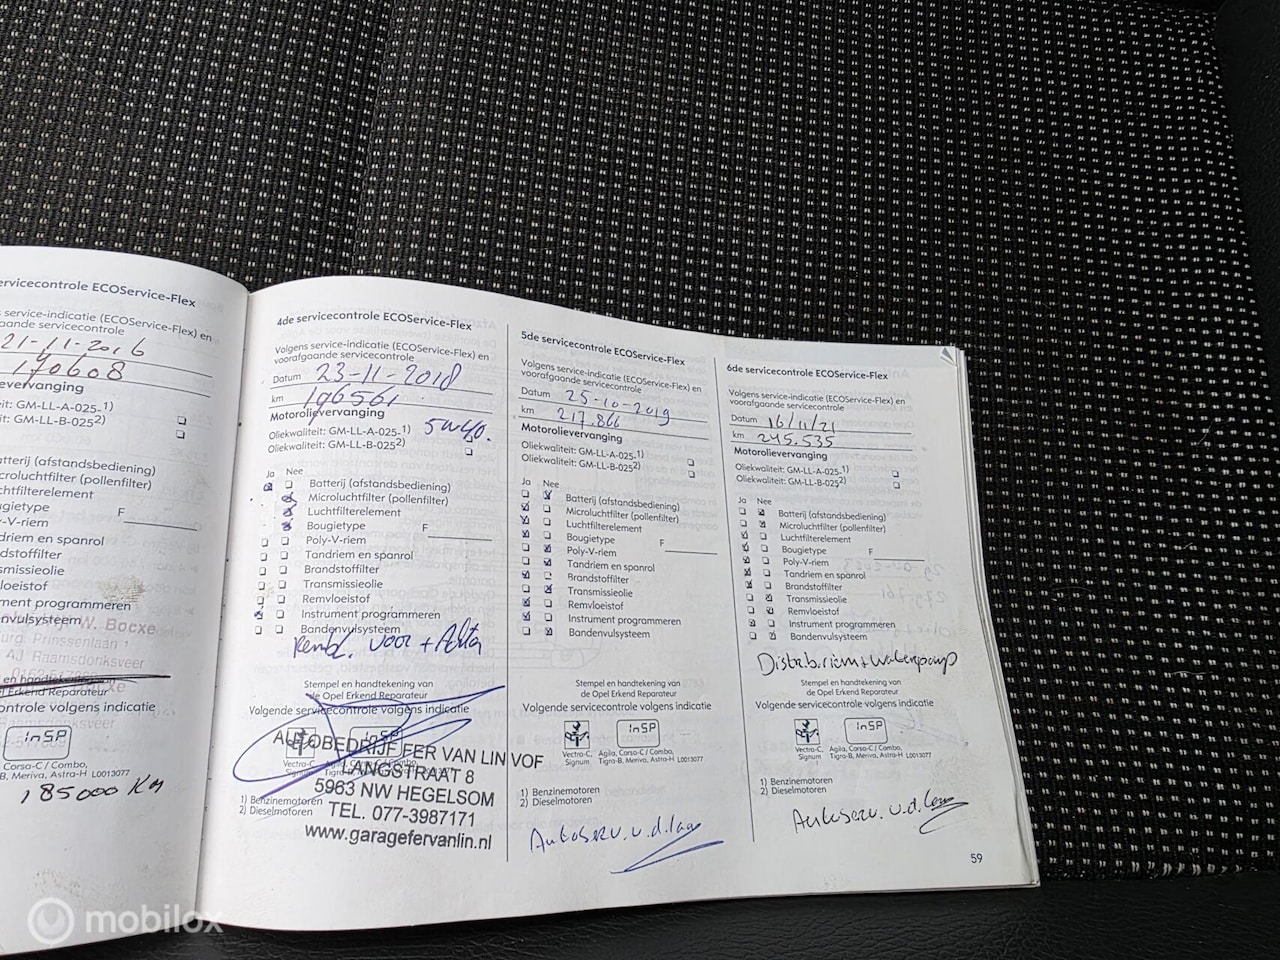 ervicecontrole ECOService-Flex
s service-indicatie (ECOService-Flex) en
aande servicecontrole
21-11-2016
170608
evervanging
eit: GM-LL-A-025-1)
eit: GM-LL-B-0252)
atterij (afstandsbediening)
icroluchtfilter (pollenfilter)
chtfilterelement
ugietype F
y-V-riem
ndriem en spanrol
ndstoffilter
nsmissieolie
mloeistof
ment programmeren
envulsysteem
W. Bocxe
urg. Prinssenlaan 1
AJ Raamsdonksveer
el Erkend Reparateur
ontrole volgens indicatie
inSP
Corsa-C / Combo,
a-B, Meriva, Astra-H L0013077
185000 KM
4de servicecontrole ECOService-Flex
Volgens service-indicatie (ECOService-Flex) en
voorafgaande servicecontrole
Datum 23-11-2018
km 196561
Motorolievervanging
Oliekwaliteit: GM-LL-A-025-1) 5W40.
Oliekwaliteit: GM-LL-B-0252)
Ja Nee
Batterij (afstandsbediening)
Microluchtfilter (pollenfilter)
Luchtfilterelement
Bougietype F
Poly-V-riem
Tandriem en spanrol
Brandstoffilter
Transmissieolie
Remvloeistof
Instrument programmeren
Bandenvulsysteem
Rembl. voor + Achter
Stempel en handtekening van
de Opel Erkend Reparateur
Volgende servicecontrole volgens indicatie
inSP
AUTOBEDRIJF FER VAN LIN VOF
LANGSTRAAT 8
5963 NW HEGELSOM
TEL. 077-3987171
www.garagefervanlin.nl
Vectra-C,
Signum
1) Benzinemotoren
2) Dieselmotoren
5de servicecontrole ECOService-Flex
Volgens service-indicatie (ECOService-Flex) en
voorafgaande servicecontrole
Datum 25-10-2019
km 217.866
Motorolievervanging
Oliekwaliteit: GM-LL-A-025-1)
Oliekwaliteit: GM-LL-B-0252)
Ja Nee
Batterij (afstandsbediening)
Microluchtfilter (pollenfilter)
Luchtfilterelement
Bougietype F
Poly-V-riem
Tandriem en spanrol
Brandstoffilter
Transmissieolie
Remvloeistof
Instrument programmeren
Bandenvulsysteem
Stempel en handtekening van
de Opel Erkend Reparateur
Volgende servicecontrole volgens indicatie
inSP
Vectra-C, Agila, Corsa-C / Combo,
Signum Tigra-B, Meriva, Astra-H L0013077
1) Benzinemotoren
2) Dieselmotoren
Autoserv. v.d. Laar
6de servicecontrole ECOService-Flex
Volgens service-indicatie (ECOService-Flex) en
voorafgaande servicecontrole
Datum 16/11/21
km 245.535
Motorolievervanging
Oliekwaliteit: GM-LL-A-025-1)
Oliekwaliteit: GM-LL-B-0252)
Ja Nee
Batterij (afstandsbediening)
Microluchtfilter (pollenfilter)
Luchtfilterelement
Bougietype F
Poly-V-riem
Tandriem en spanrol
Brandstoffilter
Transmissieolie
Remvloeistof
Instrument programmeren
Bandenvulsysteem
Distrib.riem + Waterpomp
Stempel en handtekening van
de Opel Erkend Reparateur
Volgende servicecontrole volgens indicatie
inSP
Vectra-C, Agila, Corsa-C / Combo,
Signum Tigra-B, Meriva, Astra-H L0013077
1) Benzinemotoren
2) Dieselmotoren
Autoserv. v.d. Laar
59
mobilox